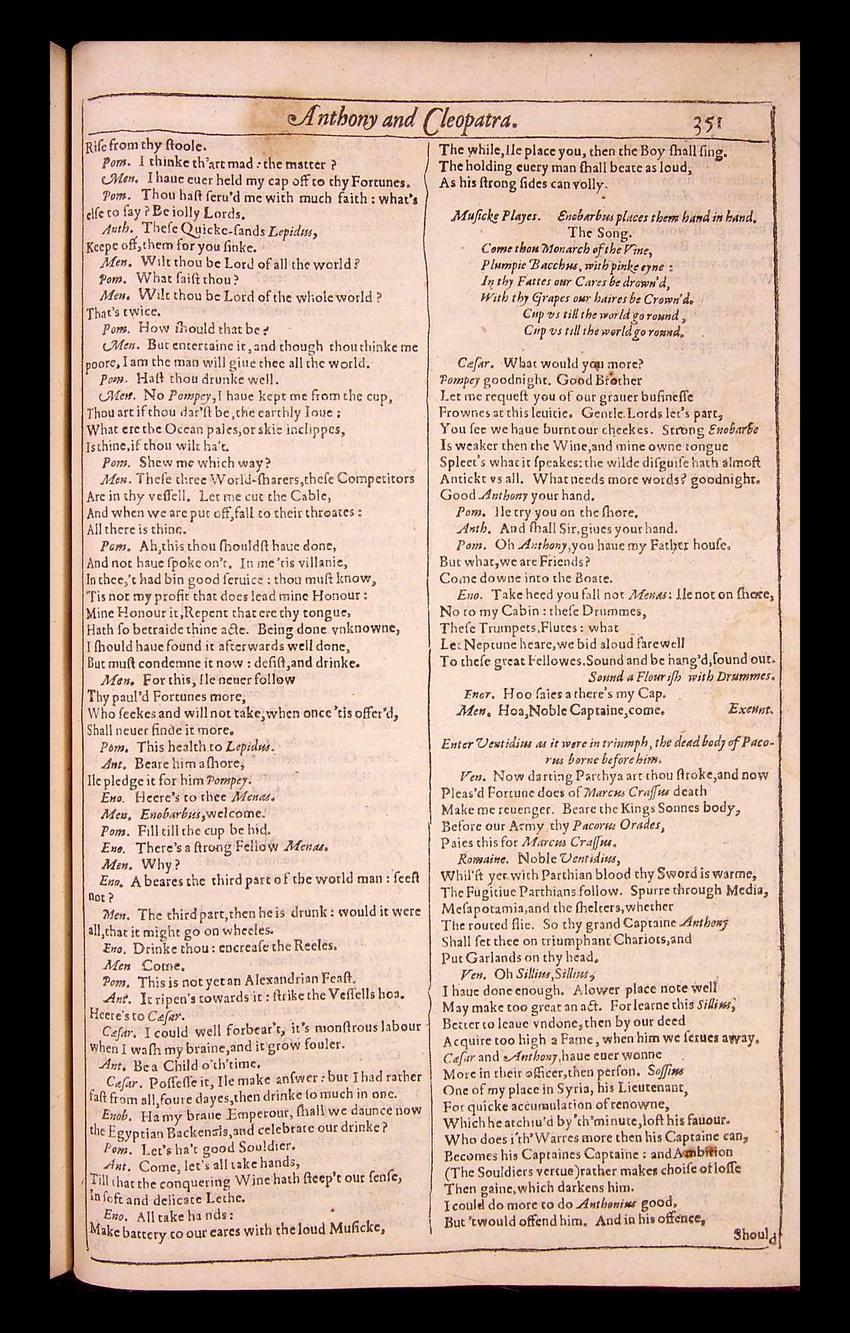 Anthony and Cleopatra. 351
Riſe from thy ſtoole.
Pom. I thinke th'art mad : the matter ?
Men. I haue euer held my cap off to thy Fortunes.
Pom. Thou haſt ſeru'd me with much faith : what's
elſe to ſay ? Be iolly Lords.
Anth. Theſe Quicke-ſands Lepidus,
Keepe off, them for you ſinke.
Men. Wilt thou be Lord of all the world ?
Pom. What ſaiſt thou ?
Men. Wilt thou be Lord of the whole world ?
That's twice.
Pom. How ſhould that be ?
Men. But entertaine it, and though thou thinke me
poore, I am the man will giue thee all the world.
Pom. Haſt thou drunke well.
Men. No Pompey, I haue kept me from the cup,
Thou art if thou dar'ſt be, the earthly Ioue :
What ere the Ocean pales, or skie inclippes,
Is thine, if thou wilt ha't.
Pom. Shew me which way ?
Men. Theſe three World-ſharers, theſe Competitors
Are in thy veſſell. Let me cut the Cable,
And when we are put off, fall to their throates :
All there is thine.
Pom. Ah, this thou ſhouldſt haue done,
And not haue ſpoke on't. In me 'tis villanie,
In thee,'t had bin good ſeruice : thou muſt know,
'Tis not my profit that does lead mine Honour :
Mine Honour it, Repent that ere thy tongue,
Hath ſo betraide thine acte. Being done vnknowne,
I ſhould haue found it afterwards well done,
But muſt condemne it now : deſiſt, and drinke.
Men. For this, Ile neuer follow
Thy paul'd Fortunes more,
Who ſeekes and will not take, when once 'tis offer'd,
Shall neuer finde it more.
Pom. This health to Lepidus.
Ant. Beare him aſhore,
Ile pledge it for him Pompey.
Eno. Heere's to thee Menas.
Men. Enobarbus, welcome.
Pom. Fill till the cup be hid.
Eno. There's a ſtrong Fellow Menas.
Men. Why ?
Eno. A beares the third part of the world man : ſeeſt
not ?
Men. The third part, then he is drunk : would it were
all, that it might go on wheeles.
Eno. Drinke thou : encreaſe the Reeles.
Men Come.
Pom. This is not yet an Alexandrian Feaſt.
Ant. It ripen's towards it : ſtrike the Veſſells hoa.
Heere's to Cæſar.
Cæſar. I could well forbear't, it's monſtrous labour
when I waſh my braine, and it grow fouler.
Ant. Be a Child o'th'time.
Cæſar. Poſſeſſe it, Ile make anſwer : but I had rather
faſt from all, foure dayes, then drinke ſo much in one.
Enob. Ha my braue Emperour, ſhall we daunce now
the Egyptian Backenals, and celebrate our drinke ?
Pom. Let's ha't good Souldier.
Ant. Come, let's all take hands,
Till that the conquering Wine hath ſteep't our ſenſe,
In ſoft and delicate Lethe.
Eno. All take hands :
Make battery to our eares with the loud Muſicke,
The while, Ile place you, then the Boy ſhall ſing.
The holding euery man ſhall beate as loud,
As his ſtrong ſides can volly.
Muſicke Playes. Enobarbus places them hand in hand.
The Song.
Come thou Monarch of the Vine,
Plumpie Bacchus, with pinke eyne :
In thy Fattes our Cares be drown'd,
With thy Grapes our haires be Crown'd.
Cup vs till the world go round,
Cup vs till the world go round.
Cæſar. What would you more ?
Pompey goodnight. Good Brother
Let me requeſt you of our grauer buſineſſe
Frownes at this leuitie. Gentle Lords let's part,
You ſee we haue burnt our cheekes. Strong Enobarbe
Is weaker then the Wine, and mine owne tongue
Spleet's what it ſpeakes : the wilde diſguiſe hath almoſt
Antickt vs all. What needs more words ? goodnight.
Good Anthony your hand.
Pom. Ile try you on the ſhore.
Anth. And ſhall Sir, giues your hand.
Pom. Oh Anthony, you haue my Father houſe.
But what, we are Friends ?
Come downe into the Boate.
Eno. Take heed you fall not Menas : Ile not on ſhore,
No to my Cabin : theſe Drummes,
Theſe Trumpets, Flutes : what
Let Neptune heare, we bid aloud farewell
To theſe great Fellowes. Sound and be hang'd, ſound out.
Sound a Flouriſh with Drummes.
Enor. Hoo ſaies a there's my Cap.
Men. Hoa, Noble Captaine, come. Exeunt.
Enter Ventidius as it were in triumph, the dead body of Paco-
rus borne before him.
Ven. Now darting Parthya art thou ſtroke, and now
Pleas'd Fortune does of Marcus Craſſus death
Make me reuenger. Beare the Kings Sonnes body,
Before our Army thy Pacorus Orades,
Paies this for Marcus Craſſus.
Romaine. Noble Ventidius,
Whil'ſt yet with Parthian blood thy Sword is warme,
The Fugitiue Parthians follow. Spurre through Media,
Meſapotamia, and the ſhelters, whether
The routed flie. So thy grand Captaine Anthony
Shall ſet thee on triumphant Chariots, and
Put Garlands on thy head.
Ven. Oh Sillius, Sillius,
I haue done enough. A lower place note well
May make too great an act. For learne this Sillius,
Better to leaue vndone, then by our deed
Acquire too high a Fame, when him we ſerues away.
Cæſar and Anthony, haue euer wonne
More in their officer, then perſon. Soſſius
One of my place in Syria, his Lieutenant,
For quicke accumulation of renowne,
Which he atchiu'd by'th'minute, loſt his fauour.
Who does i'th'Warres more then his Captaine can,
Becomes his Captaines Captaine : and Ambition
(The Souldiers vertue) rather makes choiſe of loſſe
Then gaine, which darkens him.
I could do more to do Anthonius good,
But 'twould offend him. And in his offence,
Should